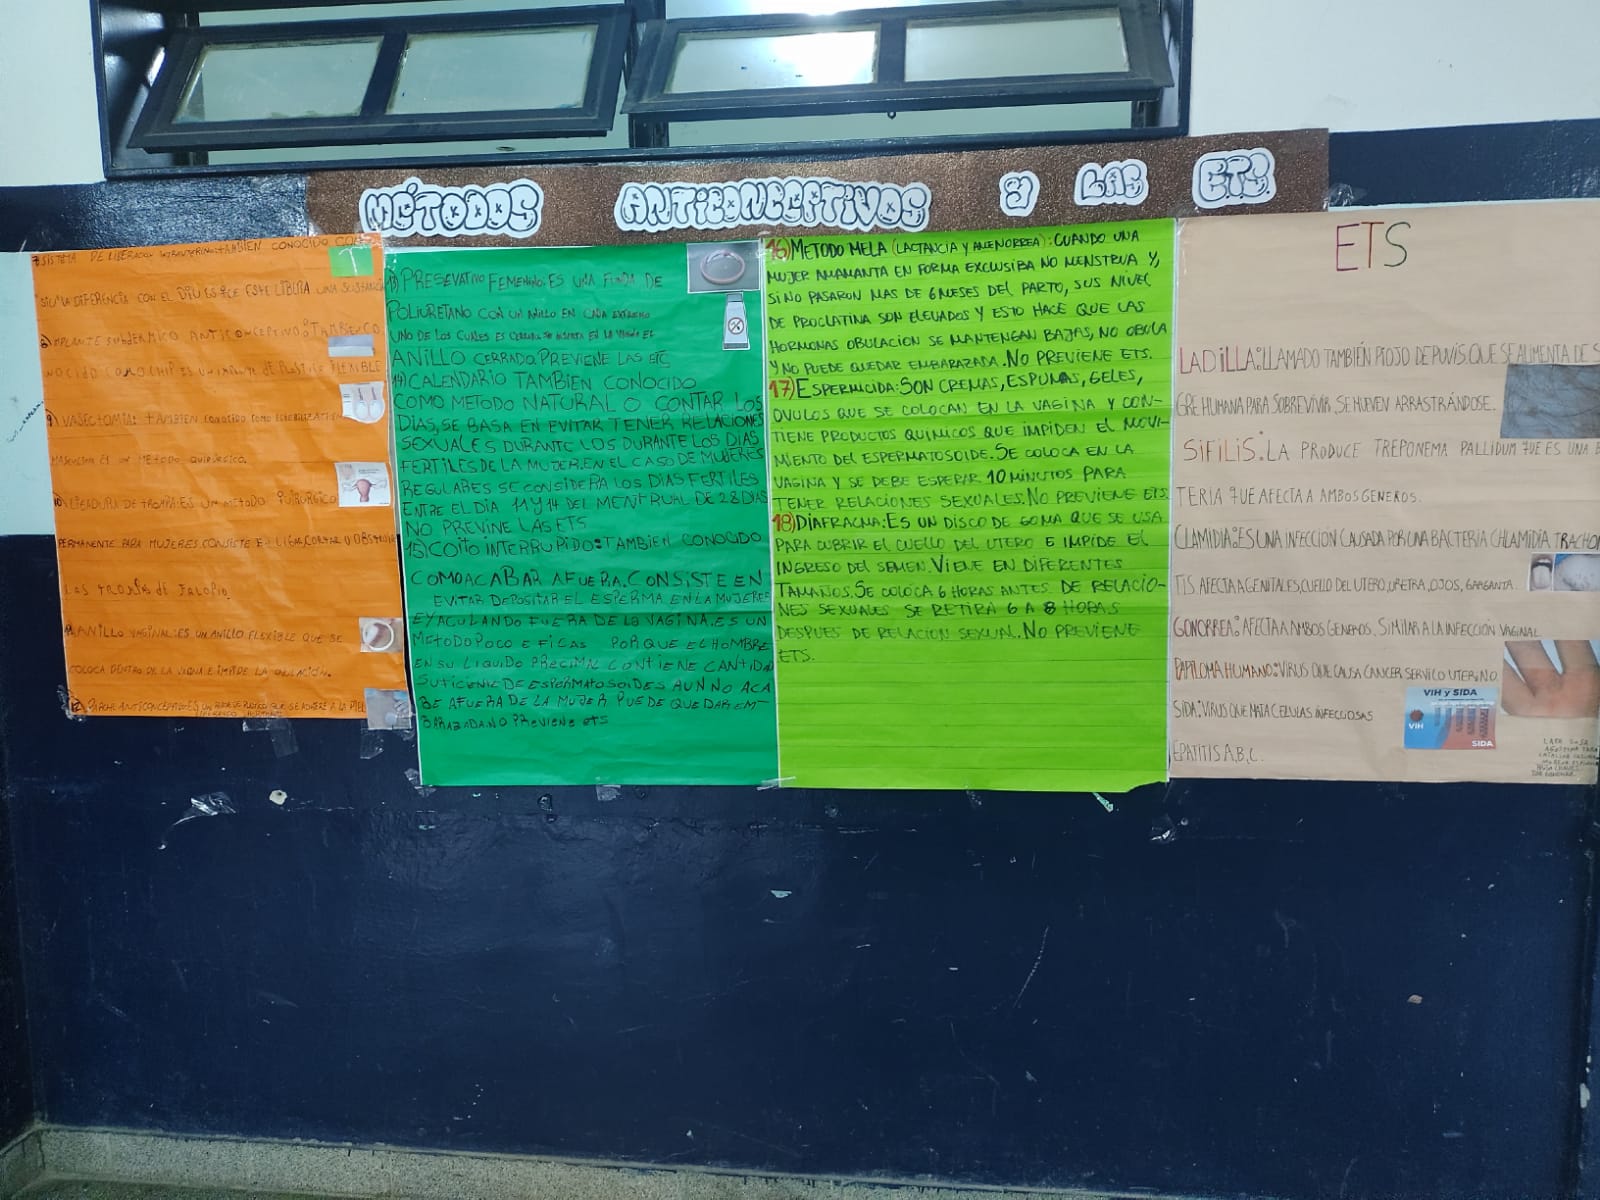 MÉTODOS ANTICONCEPTIVOS y LAS ETS
SISTEMA DE LIBERACION INTRAUTERINO: TAMBIEN CONOCIDO COMO
LA DIFERENCIA CON EL DIU ES QUE ESTE LIBERA UNA SUSTANCIA
8) IMPLANTE SUBDERMICO ANTICONCEPTIVO: TAMBIEN CO
NOCIDO COMO CHIP ES UN PLASTICO FLEXIBLE
9) VASECTOMIA: TAMBIEN CONOCIDO COMO
MASCULINA ES UN METODO QUIRURGICO.
10) LIGADURA DE TROMPA: ES UN METODO QUIRURGICO
PERMANENTE PARA MUJERES CONSISTE EN LIGAR, CORTAR U OBSTRUIR
LAS DE FALOPIO.
11) ANILLO VAGINAL: ES UN ANILLO FLEXIBLE QUE SE
COLOCA DENTRO DE LA E IMPIDE LA OVULACIÓN.
12) PARCHE ANTICONCEPTIVO: ES UN DE PLASTICO QUE SE ADHIERE A LA PIEL
13) PRESEVATIVO FEMENINO: ES UNA FUNDA DE
POLIURETANO CON UN ANILLO EN CADA EXTREMO
UNO DE LOS CUALES ES CERRADO, SE INSERTA EN LA EL
ANILLO CERRADO, PREVIENE LAS
14) CALENDARIO TAMBIEN CONOCIDO
COMO METODO NATURAL O CONTAR LOS
DIAS, SE BASA EN EVITAR TENER RELACIONES
SEXUALES DURANTE LOS DURANTE LOS DIAS
FERTILES DE LA MUJER. EN EL CASO DE MUJERES
REGULARES SE CONSIDERA LOS DIAS FERTILES
ENTRE EL DIA 11 Y 14 DEL MENTRUAL DE 28 DIAS
NO PREVINE LAS ETS
15) COITO INTERRUPIDO: TAMBIEN CONOCIDO
COMO ACABAR AFUERA. CONSISTE EN
EVITAR DEPOSITAR EL ESPERMA EN LA MUJERE
EYACULANDO FUERA DE LA VAGINA. ES UN
METODO POCO EFICAS PORQUE EL HOMBRE
EN SU LIQUIDO PRECIMAL CONTIENE CANTIDA
SUFICIENE DE ESPERMATOSOIDES AUN NO ACA
BE AFUERA DE LA MUJER PUEDE QUEDAR EM-
BARAZADA. NO PREVIENE ETS
16) METODO MELA (LACTANCIA Y AMENORREA): CUANDO UNA
MUJER AMAMANTA EN FORMA EXCLUSIBA NO MENSTRUA Y,
SI NO PASARON MAS DE 6 MESES DEL PARTO, SUS NIVEL
DE PROCLATINA SON ELEVADOS Y ESTO HACE QUE LAS
HORMONAS OBULACION SE MANTENGAN BAJAS, NO OBULA
Y NO PUEDE QUEDAR EMBARAZADA. NO PREVIENE ETS.
17) ESPERMICIDA: SON CREMAS, ESPUMAS, GELES,
OVULOS QUE SE COLOCAN EN LA VAGINA Y CON-
TIENE PRODUCTOS QUIMICOS QUE IMPIDEN EL MOVI-
MIENTO DEL ESPERMATOSOIDE. SE COLOCA EN LA
VAGINA Y SE DEBE ESPERAR 10 MINUTOS PARA
TENER RELACIONES SEXUALES. NO PREVIENE ETS.
18) DIAFRAGMA: ES UN DISCO DE GOMA QUE SE USA
PARA CUBRIR EL CUELLO DEL UTERO E IMPIDE EL
INGRESO DEL SEMEN. VIENE EN DIFERENTES
TAMAÑOS. SE COLOCA 6 HORAS ANTES DE RELACIO-
NES SEXUALES SE RETIRA 6 A 8 HORAS
DESPUES DE RELACION SEXUAL. NO PREVIENE
ETS.
ETS
LADILLA: LLAMADO TAMBIÉN PIOJO DE PUVIS. QUE SE ALIMENTA DE S
GRE HUMANA PARA SOBREVIVIR, SE MUEVEN ARRASTRÁNDOSE.
SIFILIS: LA PRODUCE TREPONEMA PALLIDUM QUE ES UNA B
TERIA QUE AFECTA A AMBOS GENEROS.
CLAMIDIA: ES UNA INFECCIÓN CAUSADA POR UNA BACTERIA CHLAMIDIA TRACHOM
TIS. AFECTA A GENITALES, CUELLO DEL UTERO, URETRA, OJOS, GARGANTA.
GONORREA: AFECTA AMBOS GENEROS, SIMILAR A LA INFECCIÓN VAGINAL
PAPILOMA HUMANO: VIRUS QUE CAUSA CANCER SERVICO UTERINO
SIDA: VIRUS QUE MATA CELULAS INFECCIOSAS
EPATITIS A, B, C.
VIH y SIDA
VIH
SIDA